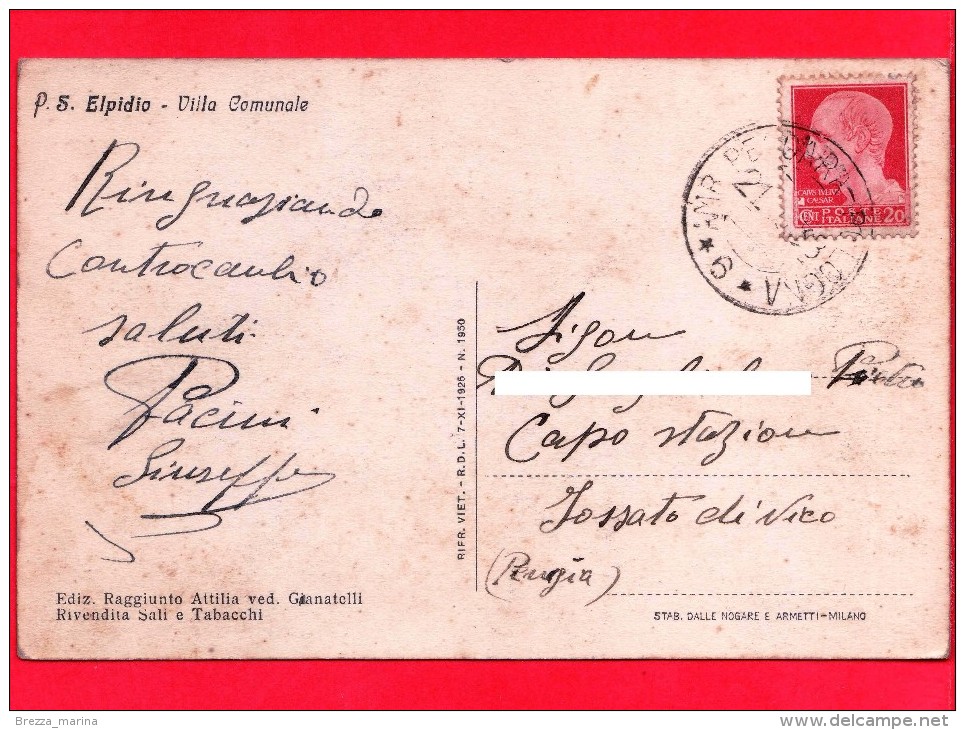 P. S. Elpidio - Villa Comunale
Ringraziando
Contracambio
saluti
Pacini
Giuseppe
Ediz. Raggiunto Attilia ved. Gianatelli
Rivendita Sali e Tabacchi
RIFR. VIET. - R.D.L. 7-XI-1925 - N. 1950
CAIVS IVLIVS
CAESAR
CENT POSTE ITALIANE 20
Sigor
Capo stazione
Fossato di Vico
(Perugia)
STAB. DALLE NOGARE E ARMETTI-MILANO
Brezza_marina
www.delcampe.net